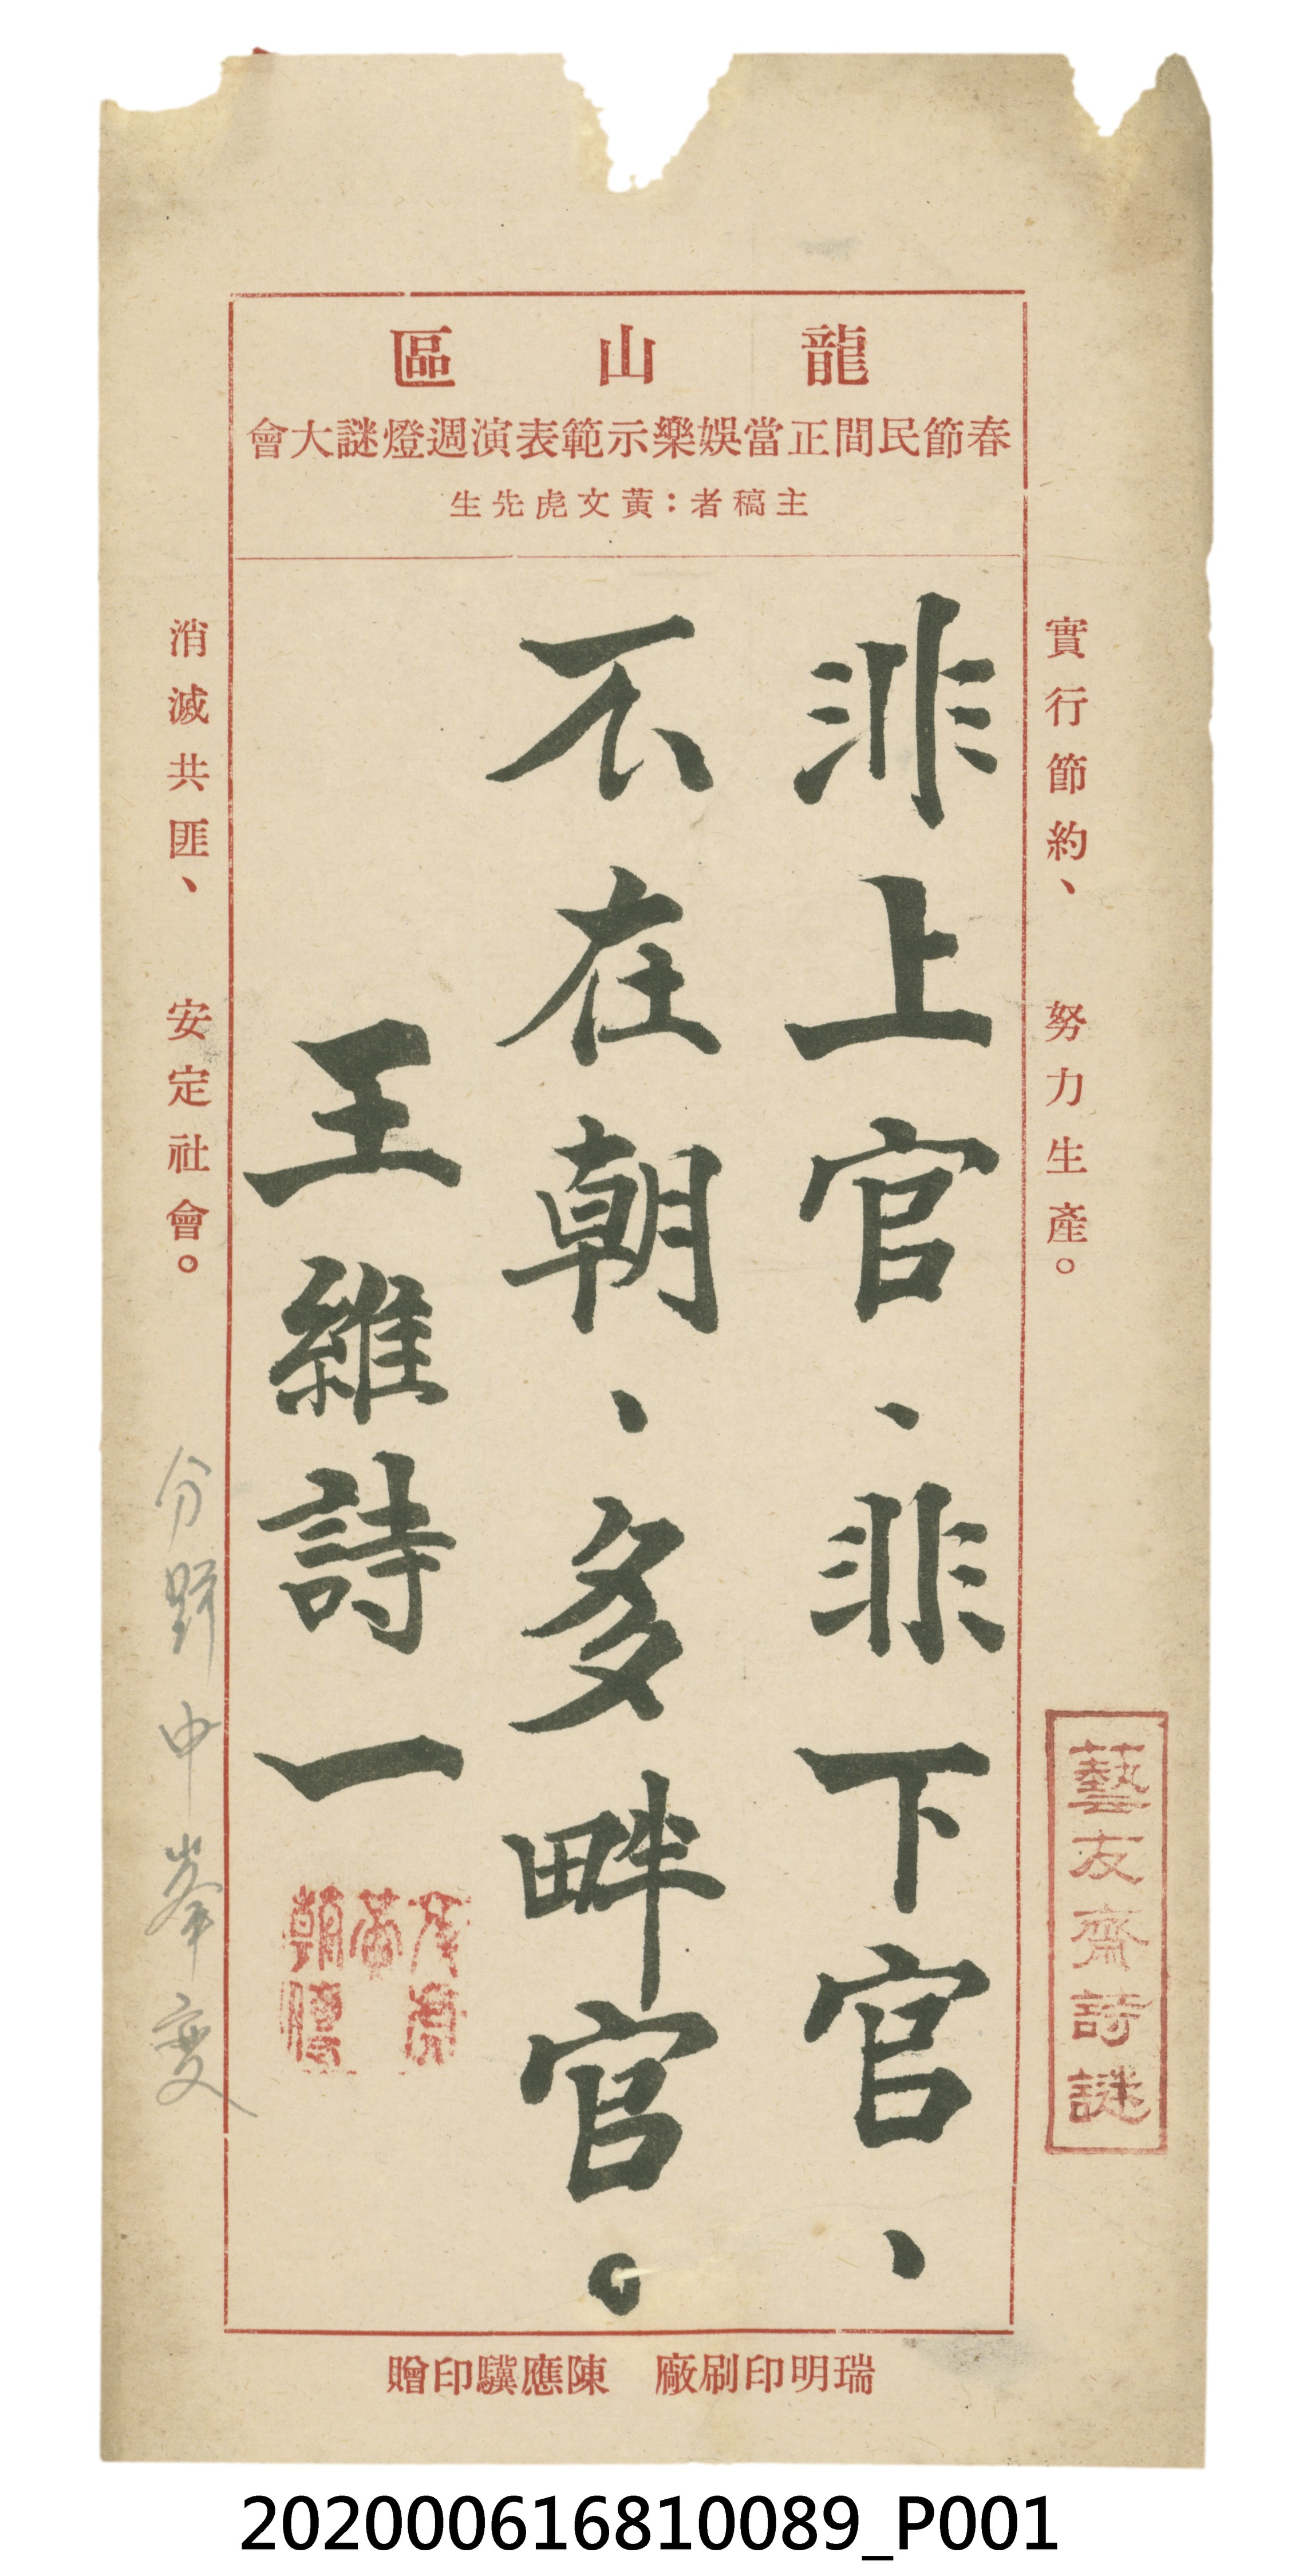 龍山區
春節民間正當娛樂示範表演週燈謎大會
主稿者：黃文虎先生
實行節約、努力生產。
藝友齋詩謎
非上官、非下官、
不在朝、多畔官。
王維詩一
消滅共匪、安定社會。
分野中峯变
瑞明印刷廠 陳應驥印贈
202000616810089_P001